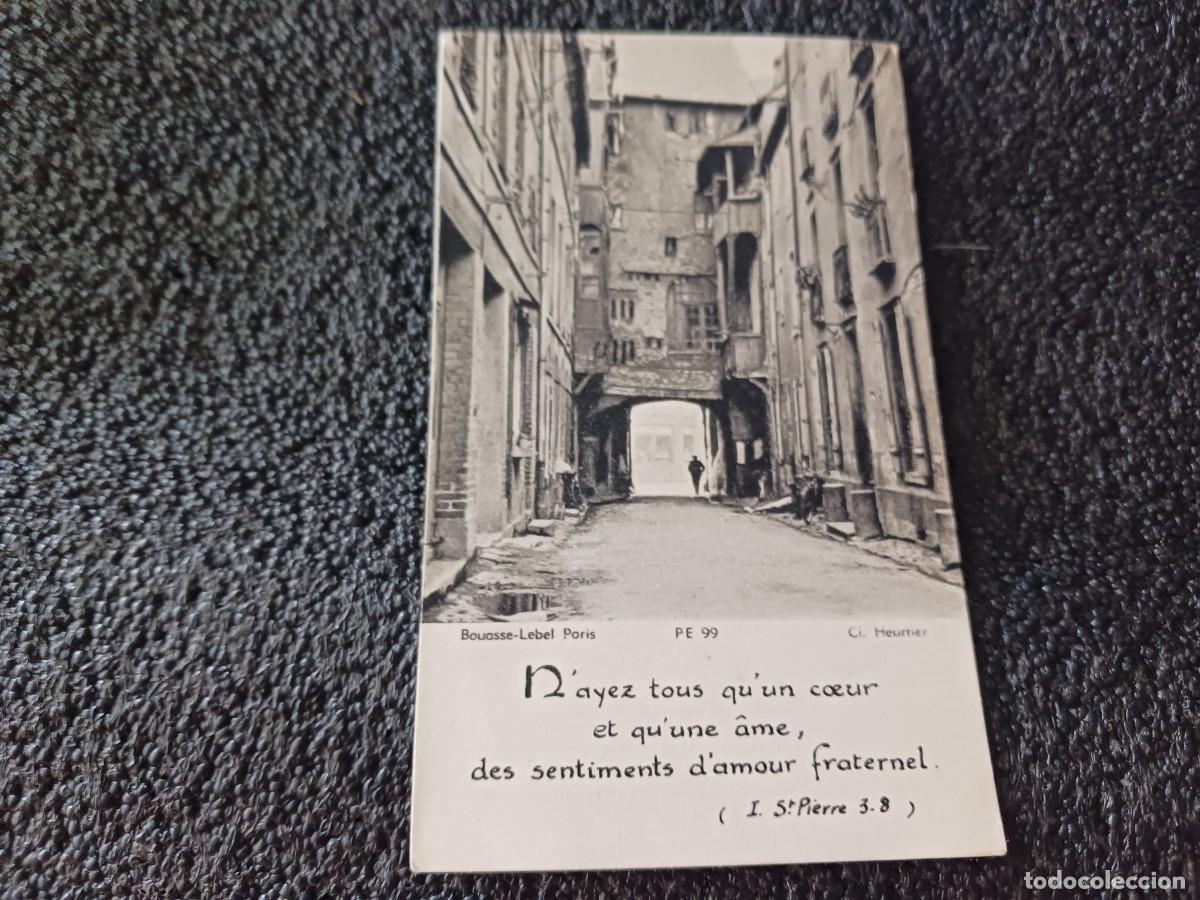 Bouasse-Lebel Paris PE 99 Cl. Heurtier
N'ayez tous qu'un cœur
et qu'une âme,
des sentiments d'amour fraternel.
( I. St Pierre 3-8 )
todocoleccion